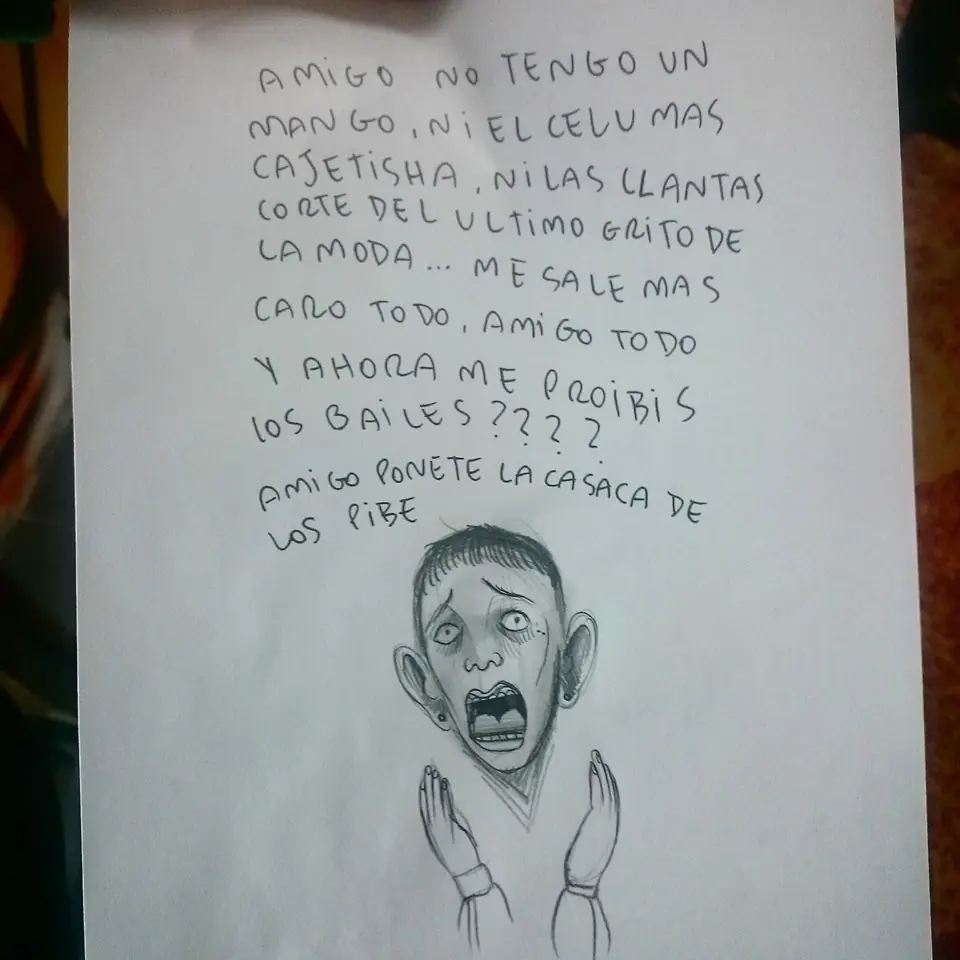 AMIGO NO TENGO UN
MANGO, NI EL CELU MAS
CAJETISHA, NI LAS LLANTAS
CORTE DEL ULTIMO GRITO DE
LA MODA... ME SALE MAS
CARO TODO, AMIGO TODO
Y AHORA ME PROIBIS
LOS BAILES????
AMIGO PONETE LA CASACA DE
LOS PIBE